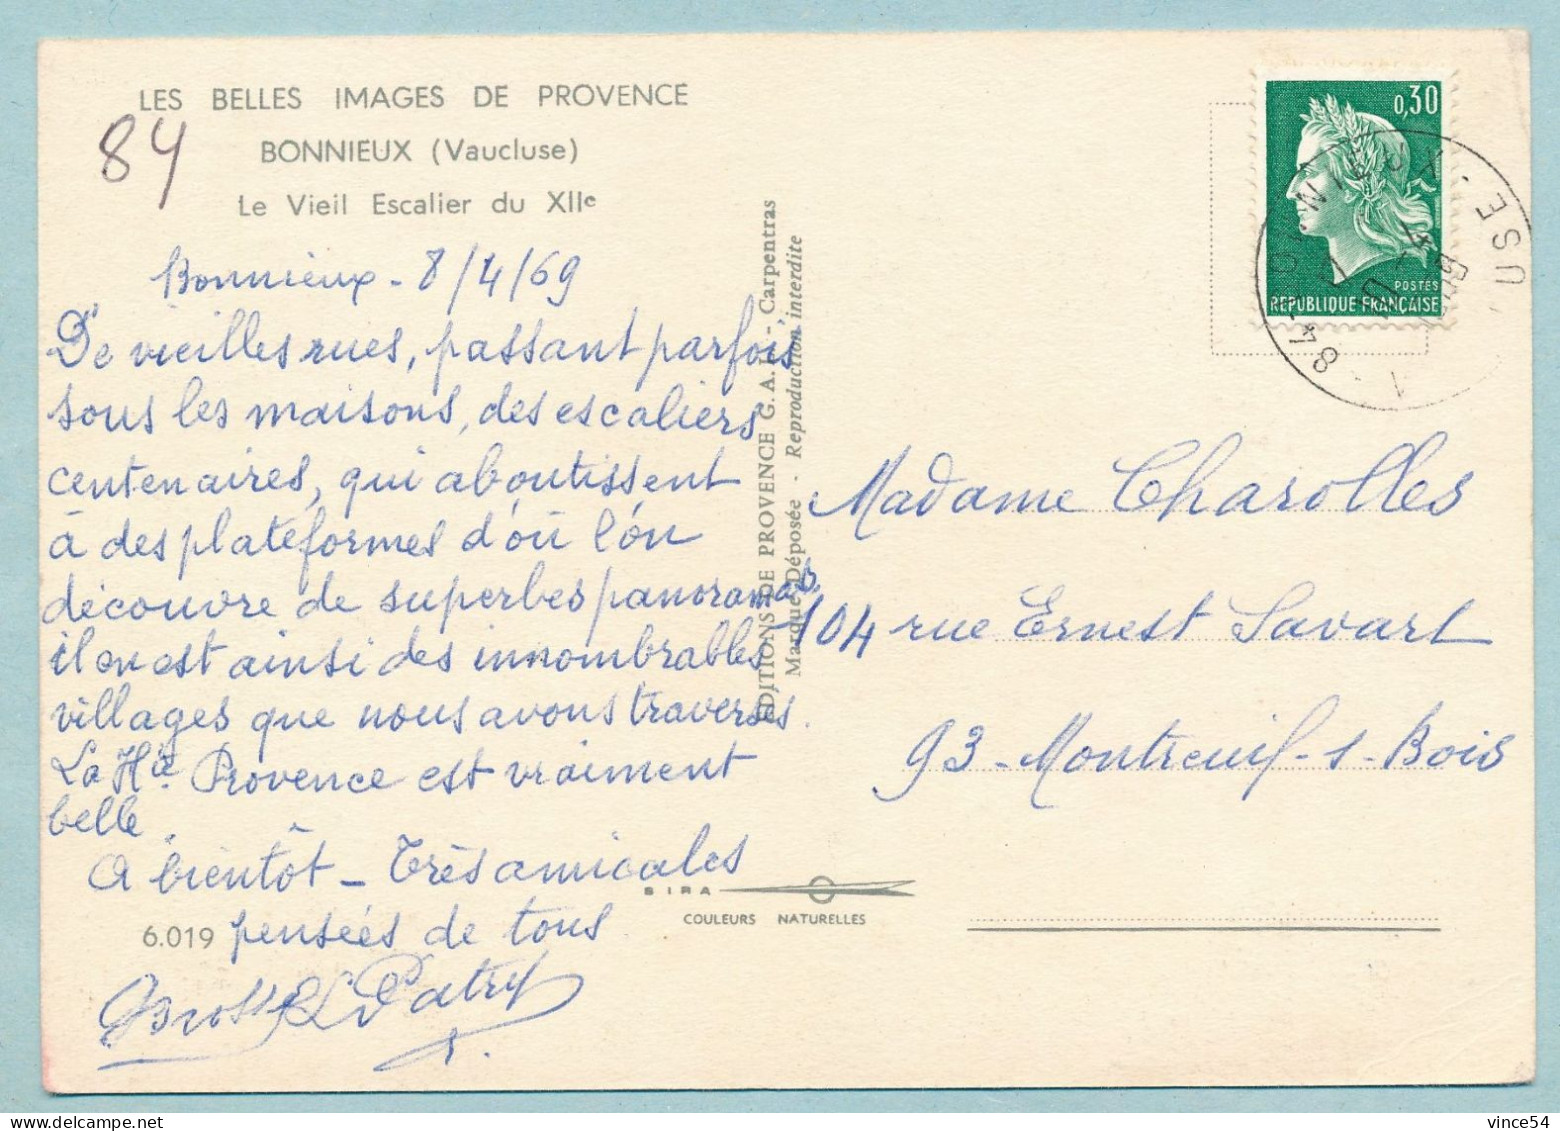 LES BELLES IMAGES DE PROVENCE
84
BONNIEUX (Vaucluse)
Le Vieil Escalier du XIIe
Bonnieux - 8/4/69
De vieilles rues, passant parfois
sous les maisons, des escaliers
centenaires, qui aboutissent
à des plateformes d'où l'on
découvre de superbes panoramas
il en est ainsi des innombrables
villages que nous avons traversés.
La Hte Provence est vraiment
belle.
A bientôt - Très amicales
pensées de tous
6.019
EDITIONS DE PROVENCE G. A. L. - Carpentras
Marque Déposée - Reproduction interdite
SIRA
COULEURS NATURELLES
0,30
POSTES
REPUBLIQUE FRANÇAISE
84 - BONNIEUX -
Madame Charolles
104 rue Ernest Savart
93 - Montreuil-s-Bois
vince54